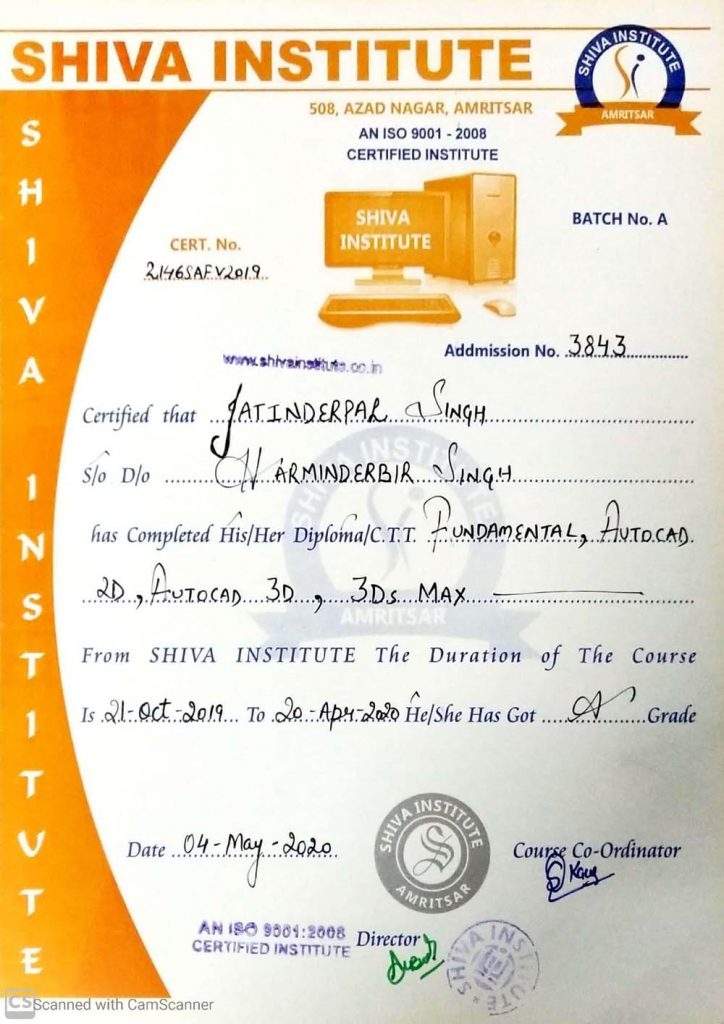 SHIVA INSTITUTE
SHIVA INSTITUTE
AMRITSAR
508, AZAD NAGAR, AMRITSAR
AN ISO 9001 - 2008
CERTIFIED INSTITUTE
SHIVA INSTITUTE
SHIVA
INSTITUTE
BATCH No. A
CERT. No.
2146SAFV2019
www.shivainstitute.co.in
Addmission No. 3843
Certified that JATINDERPAL SINGH
S/o D/o HARMINDERBIR SINGH
has Completed His/Her Diploma/C.T.T. FUNDAMENTAL, AUTOCAD
2D, AUTOCAD 3D, 3Ds MAX
SHIVA INSTITUTE
AMRITSAR
From SHIVA INSTITUTE The Duration of The Course
Is 21-Oct-2019 To 20-Apr-2020 He/She Has Got A Grade
SHIVA INSTITUTE
AMRITSAR
Date 04-May-2020
Course Co-Ordinator
Kaur
AN ISO 9001:2008
CERTIFIED INSTITUTE
Director
SHIVA INSTITUTE
CS Scanned with CamScanner